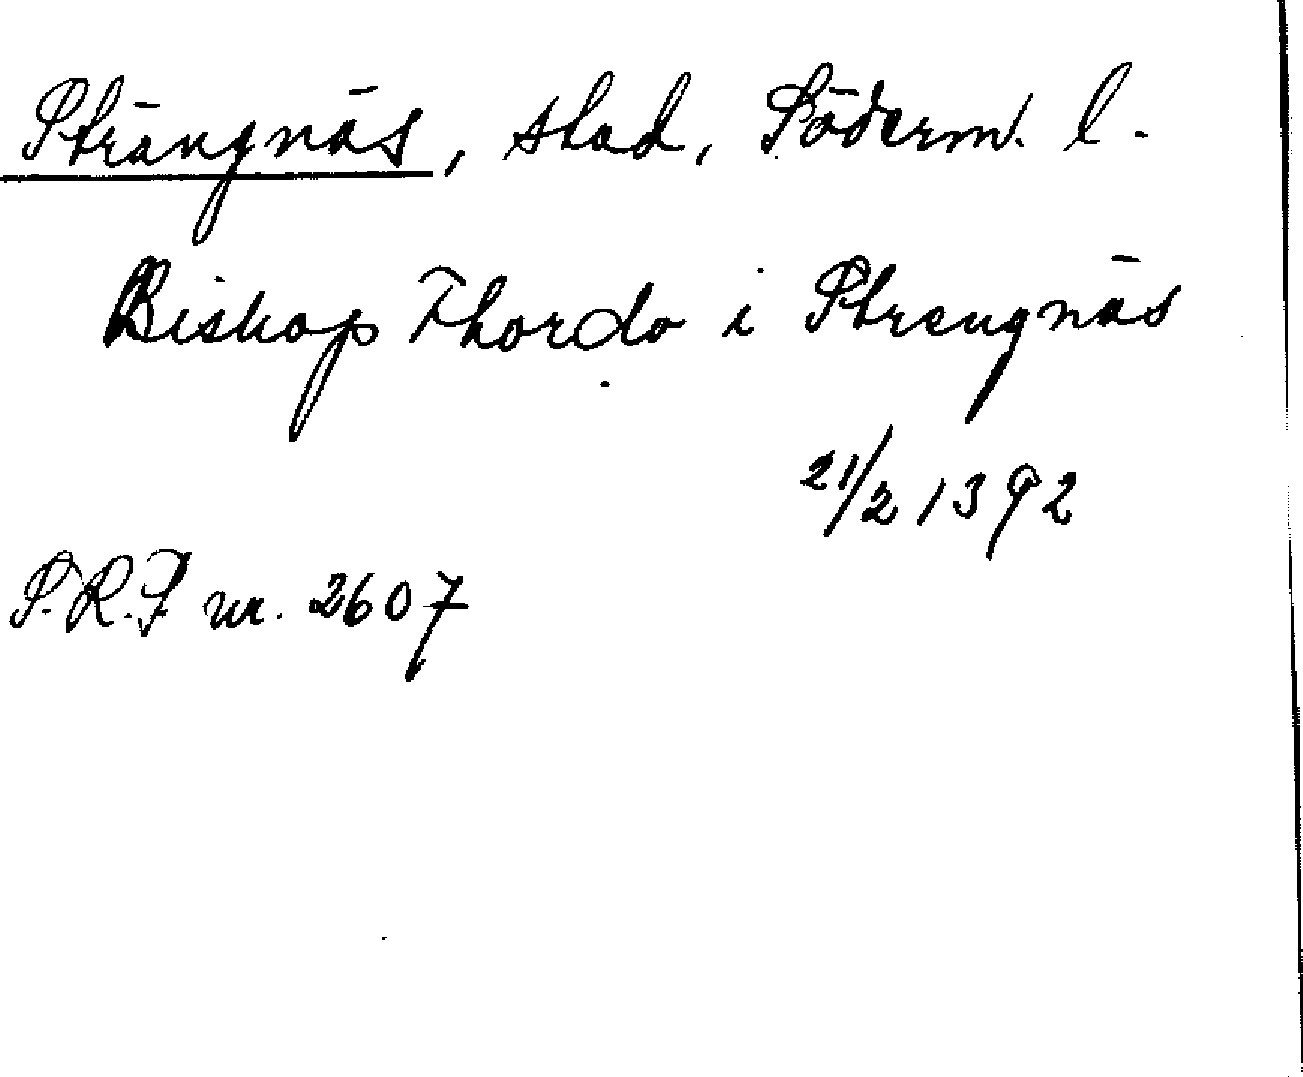 Strängnäs, stad, Söderm. l.
Biskop Thordo i Strengnäs
21/2 1392
S.R.P nr. 2607